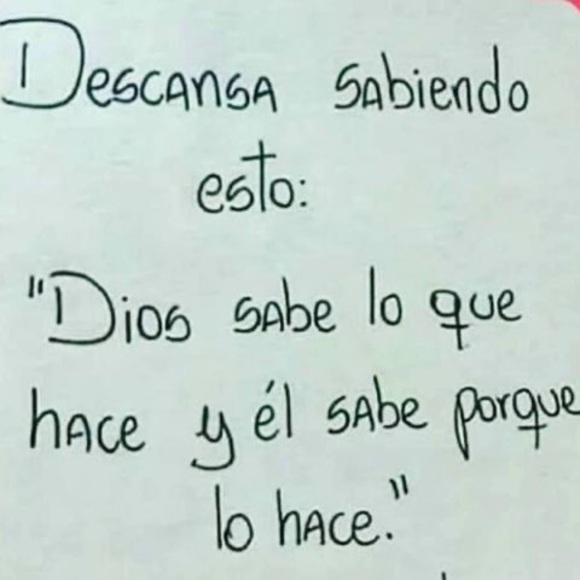 Descansa sabiendo
esto:
"Dios sabe lo que
hace y él sabe porque
lo hace."